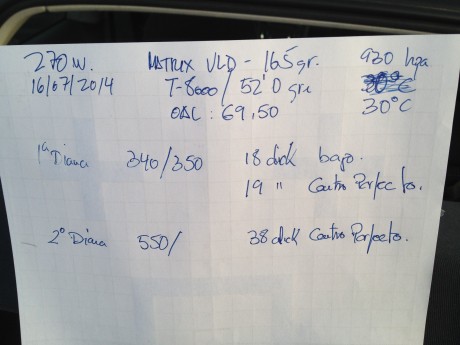 270 m. MATRIX VLD - 165 gr. 930 hpa
16/07/2014 T-8000 / 52'0 gr 30°C
OAL : 69,50 30°C
1ª Diana 340/350 18 click bajo.
19 " Centro Perfecto.
2º Diana 550/ 38 click Centro Perfecto.